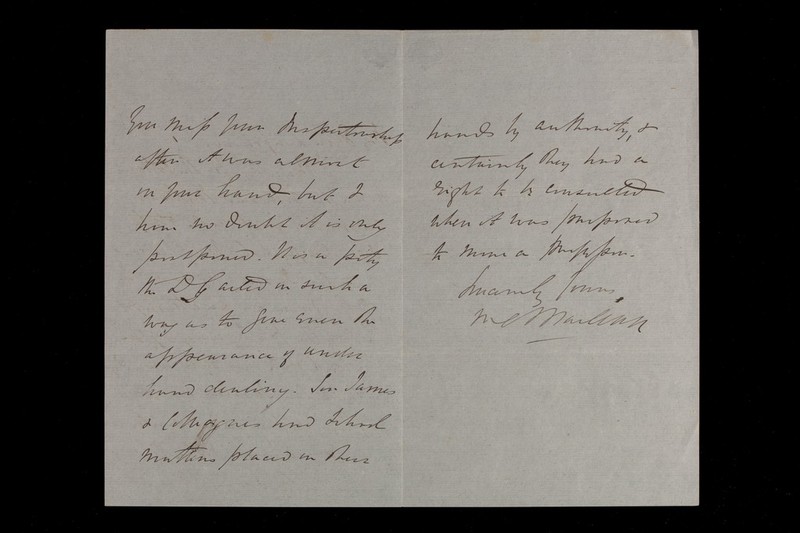 You miss your Inspectorship
after it was almost
in your hand, but I
have no doubt it is only
postponed. It is a pity
the D G acted in such a
way as to give even the
appearance of under
hand dealing. Sir James
& Colleagues had School
matters placed in their
hands by authority, &
certainly they had a
right to be consulted
when it was proposed
to move a
Sincerely Yours
W C Maclean